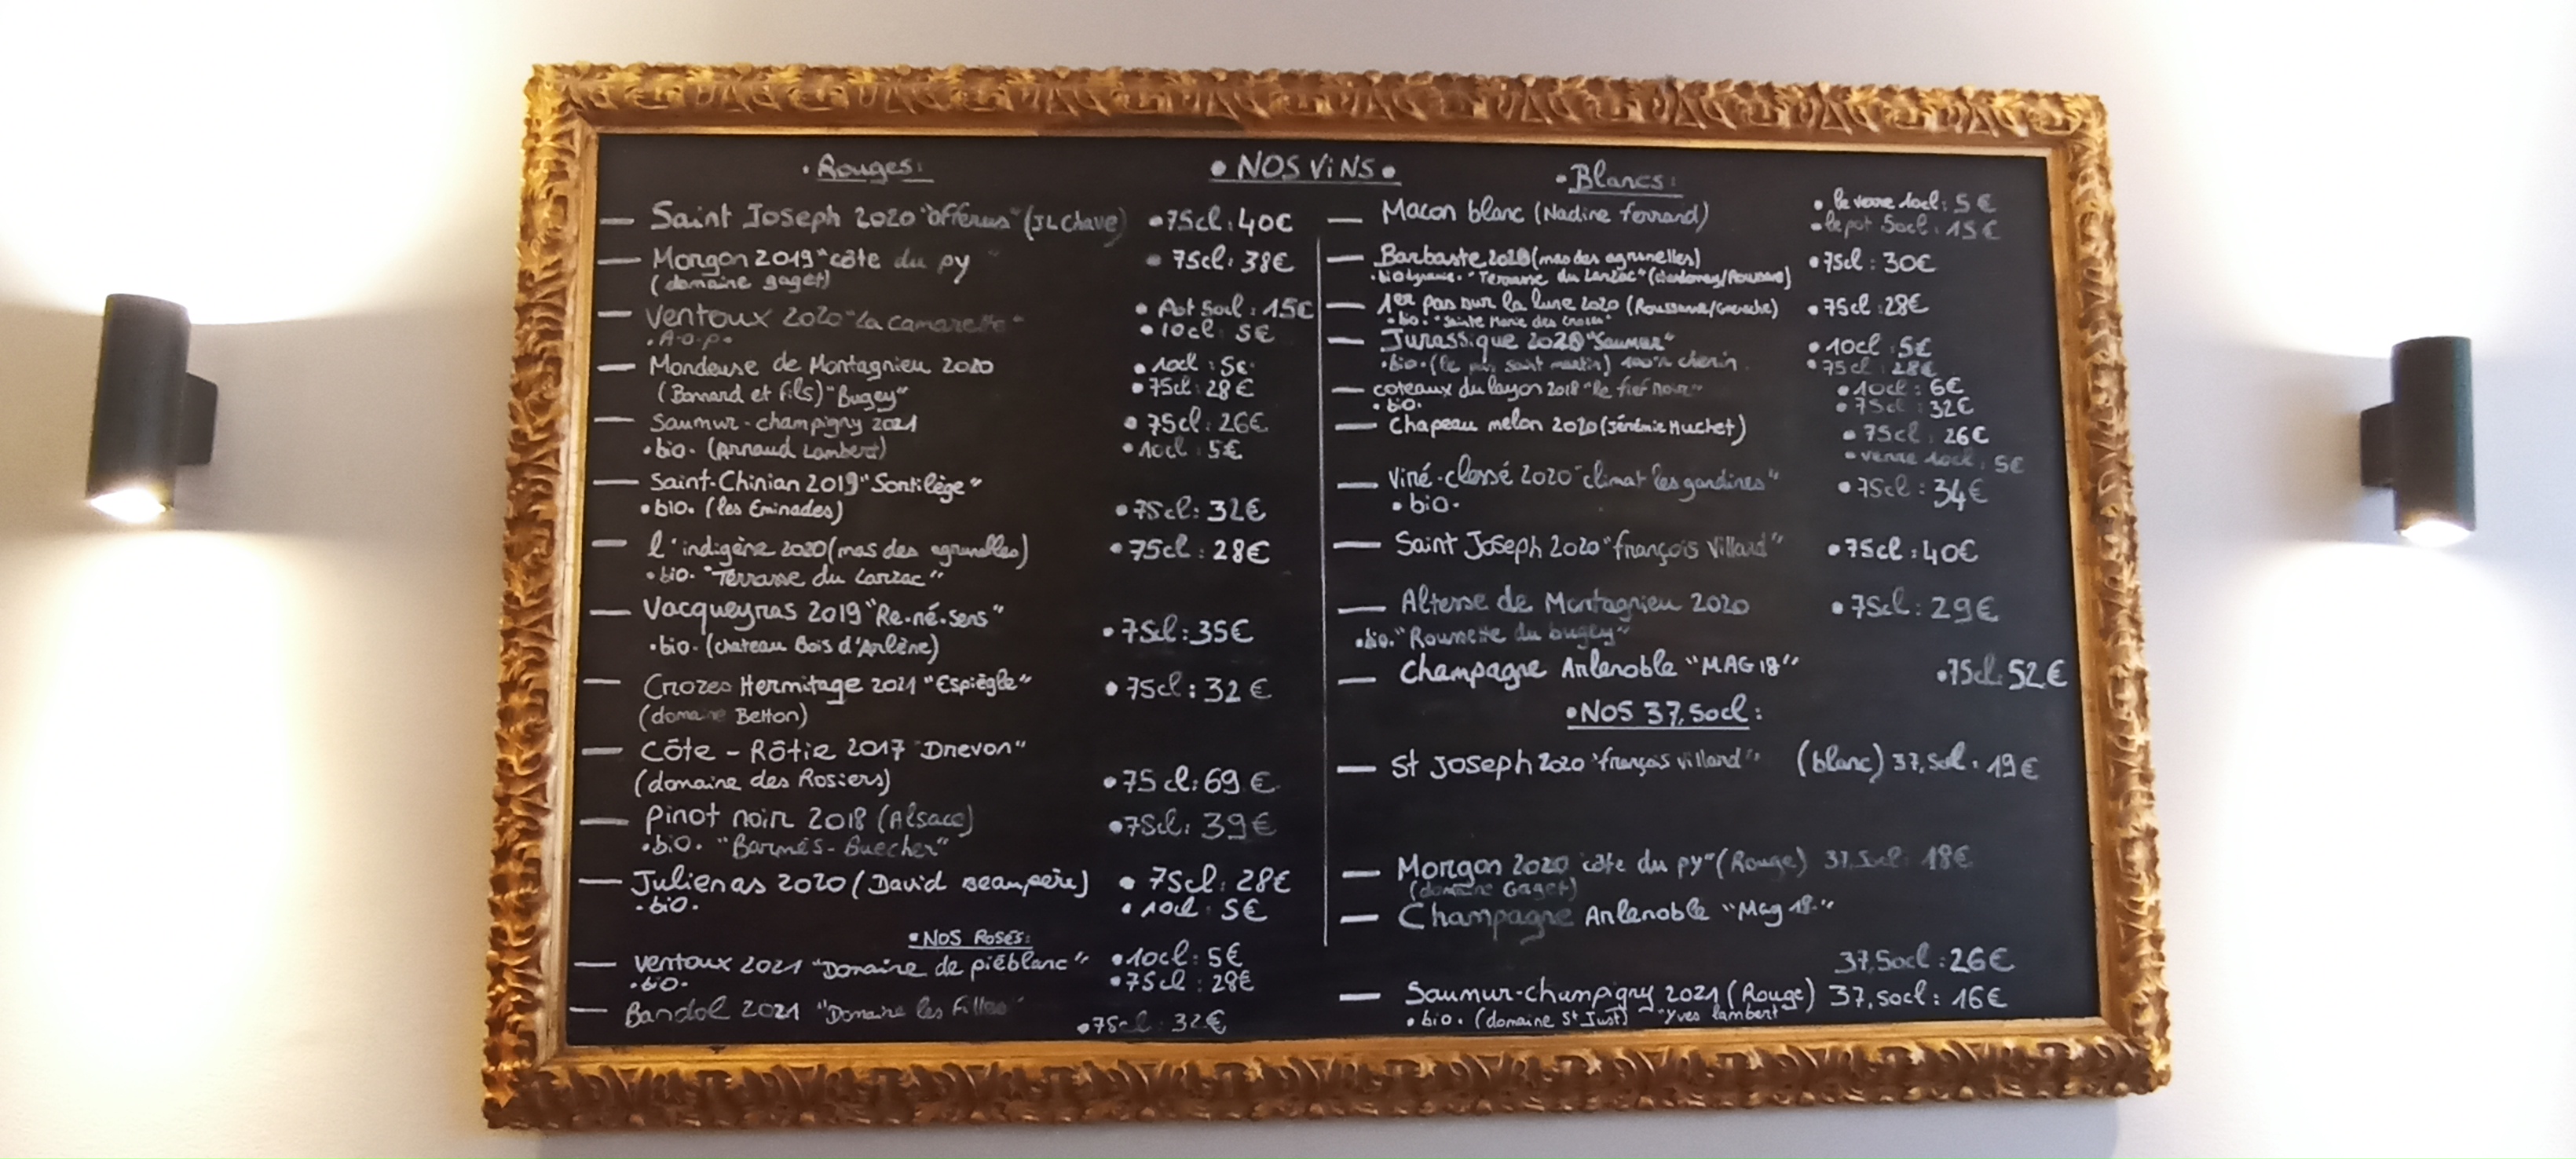 • NOS ViNS •
• Rouges:
— Saint Joseph 2020 "offerus" (JL Chave) • 75cl: 40€
— Morgon 2019 "côte du py" • 75cl: 38€
(domaine gaget)
— Ventoux 2020 "La Camarette" • Pot 50cl: 15€
• A.o.p. • 10cl: 5€
— Mondeuse de Montagnieu 2020 • 10cl: 5€
(Bonnard et fils) "Bugey" • 75cl: 28€
— Saumur-champigny 2021 • 75cl: 26€
• bio. (Arnaud Lambert) • 10cl: 5€
— Saint-Chinian 2019 "Sortilège"
• bio. (les Eminades) • 75cl: 32€
— l'indigène 2020 (mas des agrunelles) • 75cl: 28€
• bio. "Terrasse du Larzac"
— Vacqueyras 2019 "Re-né-sens" • 75cl: 35€
• bio. (chateau Bois d'Arlène)
— Crozes Hermitage 2021 "Espiègle" • 75cl: 32€
(domaine Betton)
— Côte-Rôtie 2017 "Drevon"
(domaine des Rosiers) • 75cl: 69€
— Pinot noir 2018 (Alsace) • 75cl: 39€
• bio. "Barmès-Buecher"
— Julienas 2020 (David Beaupère) • 75cl: 28€
• bio. • 10cl: 5€
• NOS ROSÉS:
— Ventoux 2021 "Domaine de piéblanc" • 10cl: 5€
• bio. • 75cl: 28€
— Bandol 2021 "Domaine les
• 75cl: 32€
• Blancs:
— Macon blanc (Nadine ferrand) • le verre 10cl: 5€
• le pot 50cl: 15€
— Barbaste 2020 (mas des agrunelles) • 75cl: 30€
"Terrasse du Larzac"
— 1er pas sur la lune 2020 (Roussanne/Grenache) • 75cl: 28€
• bio. "Sainte Marie des Crozes"
— Jurassique 2020 "Saumur" • 10cl: 5€
• bio. (le saint martin) 100% chenin. • 75cl: 28€
— coteaux du layon 2018 "le fief noir" • 10cl: 6€
• bio. • 75cl: 32€
— Chapeau melon 2020 (Jérémie Huchet) • 75cl: 26€
• verre 10cl: 5€
— Viré-clessé 2020 "climat les gandines" • 75cl: 34€
• bio.
— Saint Joseph 2020 "françois Villard" • 75cl: 40€
— Altesse de Montagnieu 2020 • 75cl: 29€
• bio. "Roussette du bugey"
— Champagne Arlenoble "MAG 18" • 75cl: 52€
• NOS 37,50cl:
— St Joseph 2020 "françois villard" (blanc) 37,50cl: 19€
— Morgon 2020 "côte du py" (Rouge) 37,5cl: 18€
(domaine Gaget)
— Champagne Arlenoble "Mag 18"
37,50cl: 26€
— Saumur-champigny 2021 (Rouge) 37,50cl: 16€
• bio. (domaine St Just) "Yves lambert"